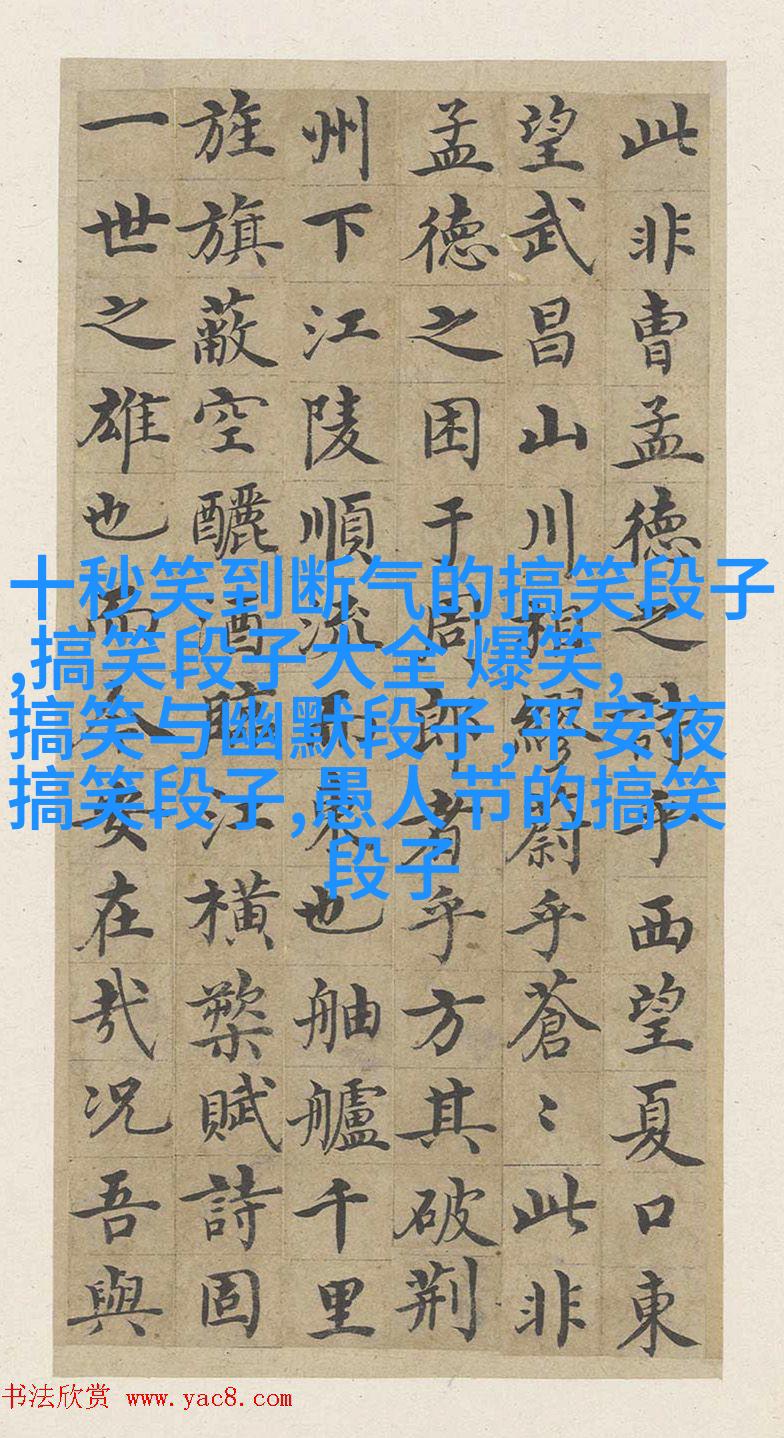 此非曹孟德之詩乎西望夏口東
望武昌山川相繆蔚乎蒼〻此非
孟德之困于周郎者乎方其破荆
州下江陵順流而東也舳艫千里
旌旗蔽空釃酒臨江橫槊賦詩固
一世之雄也而今安在哉况吾與
十秒笑到断气的搞笑段子
,搞笑段子大全 爆笑,
搞笑与幽默段子,平安夜
搞笑段子,愚人节的搞笑
段子
书法欣赏 www.yac8.com